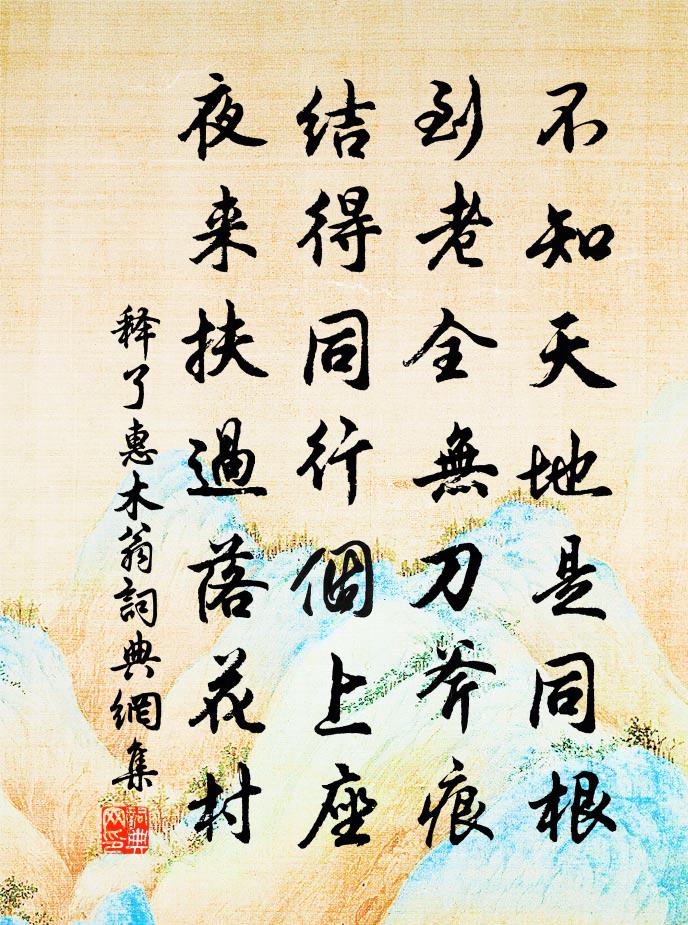 不知天地是同根
到老全無刀斧痕
結得同行個上座
夜来扶過落花村
释了惠木翁詞典網集
詞典
网印